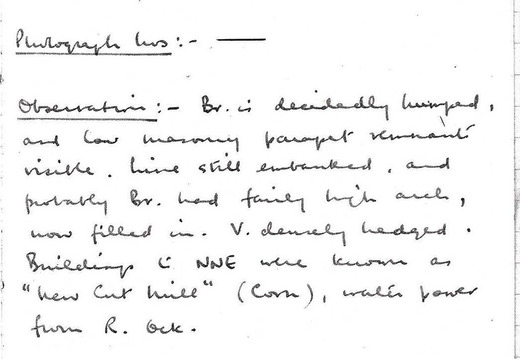 Photograph Nos:- —
Observation:- Br. is decidedly humped,
and low masonry parapet remnants
visible. Line still embanked, and
probably Br. had fairly high arch,
now filled in. V. densely hedged.
Buildings to NNE were known as
"New Cut Mill" (Corn), water power
from R. Ock.